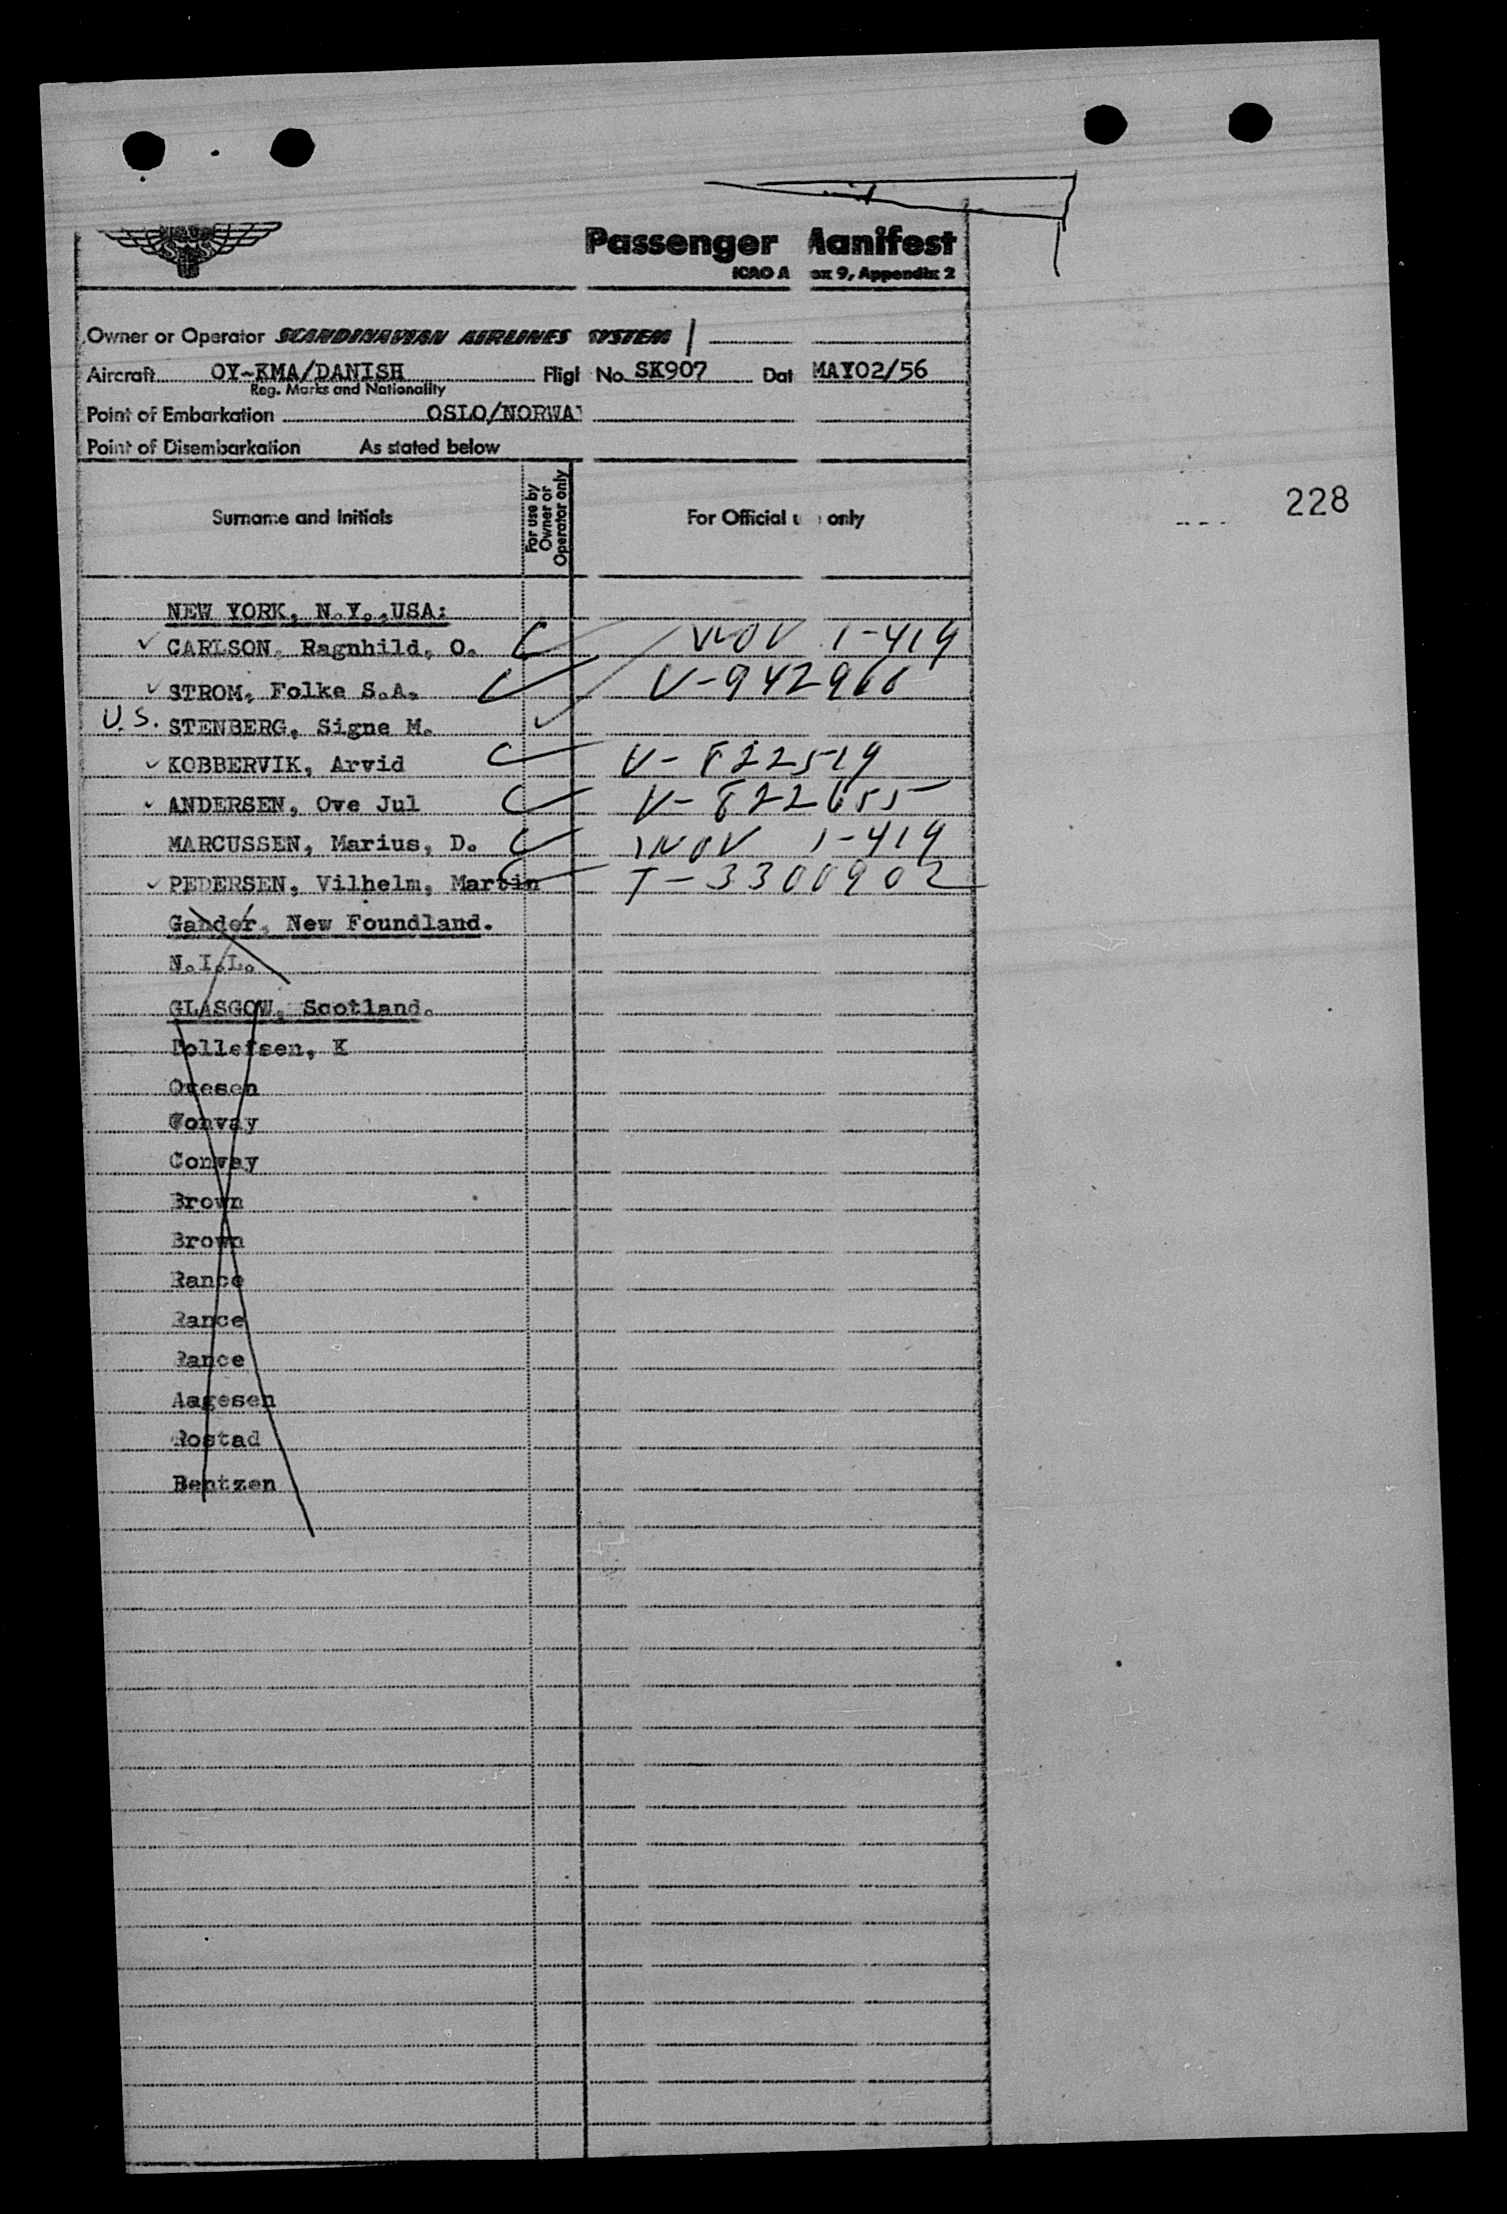 Passenger Manifest
ICAO Annex 9, Appendix 2
Owner or Operator SCANDINAVIAN AIRLINES SYSTEM
Aircraft OY-KMA/DANISH Flight No. SK907 Dat MAY02/56
Reg. Marks and Nationality
Point of Embarkation OSLO/NORWAY
Point of Disembarkation As stated below
Surname and Initials
For use by Owner or Operator only
For Official use only
228
NEW YORK, N.Y.,USA:
CARLSON, Ragnhild, O. 1-419
STROM, Folke S.A. V-942966
U.S. STENBERG, Signe M.
KOBBERVIK, Arvid V-822519
ANDERSEN, Ove Jul V-822655
MARCUSSEN, Marius, D. 1-419
PEDERSEN, Vilhelm, Martin T-3300902
Gander, New Foundland.
N.I.L.
GLASGOW, Scotland.
Tollefsen, K
Ovesen
Conway
Conway
Brown
Brown
Rance
Rance
Rance
Aagesen
Rostad
Bentzen